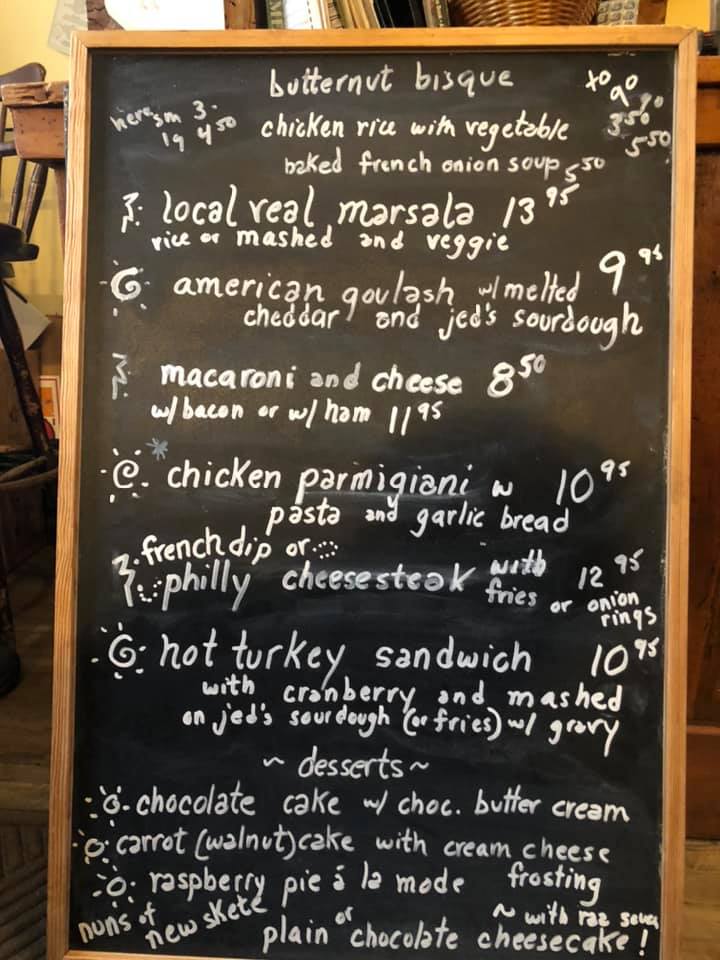 butternut bisque
here sm 3.
lg 4 50
to go
3 50
5 50
chicken rice with vegetable
baked french onion soup 5 50
local veal marsala 13 95
rice or mashed and veggie
american goulash w/ melted 9 95
cheddar and jed's sourdough
macaroni and cheese 8 50
w/ bacon or w/ ham 11 95
chicken parmigiani w 10 95
pasta and garlic bread
french dip or
philly cheesesteak with fries 12 95
or onion
rings
hot turkey sandwich 10 95
with cranberry and mashed
on jed's sourdough (or fries) w/ gravy
~ desserts ~
chocolate cake w/ choc. butter cream
carrot (walnut) cake with cream cheese
raspberry pie á la mode frosting
nuns of new skete
~ with raz
plain or chocolate cheesecake!